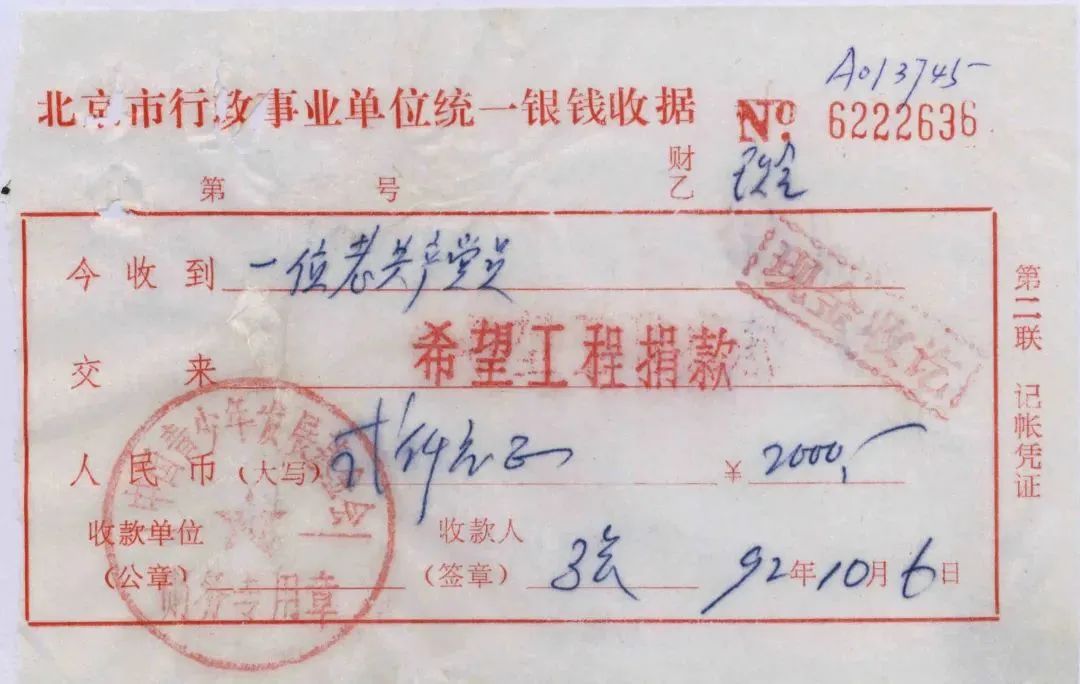 A013745
北京市行政事业单位统一银钱收据 Nº. 6222636
第 号 财乙
今收到 一位老共产党员
现金收讫
交来 希望工程捐款
人民币(大写) 贰仟元正 ¥ 2000,-
收款单位(公章) 收款人(签章) 92年10月6日
中国青少年发展基金会
财务专用章
第二联 记帐凭证